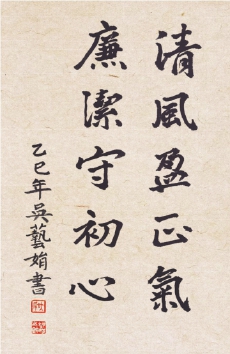 清風盈正氣
廉潔守初心
乙巳年吳藝娟書